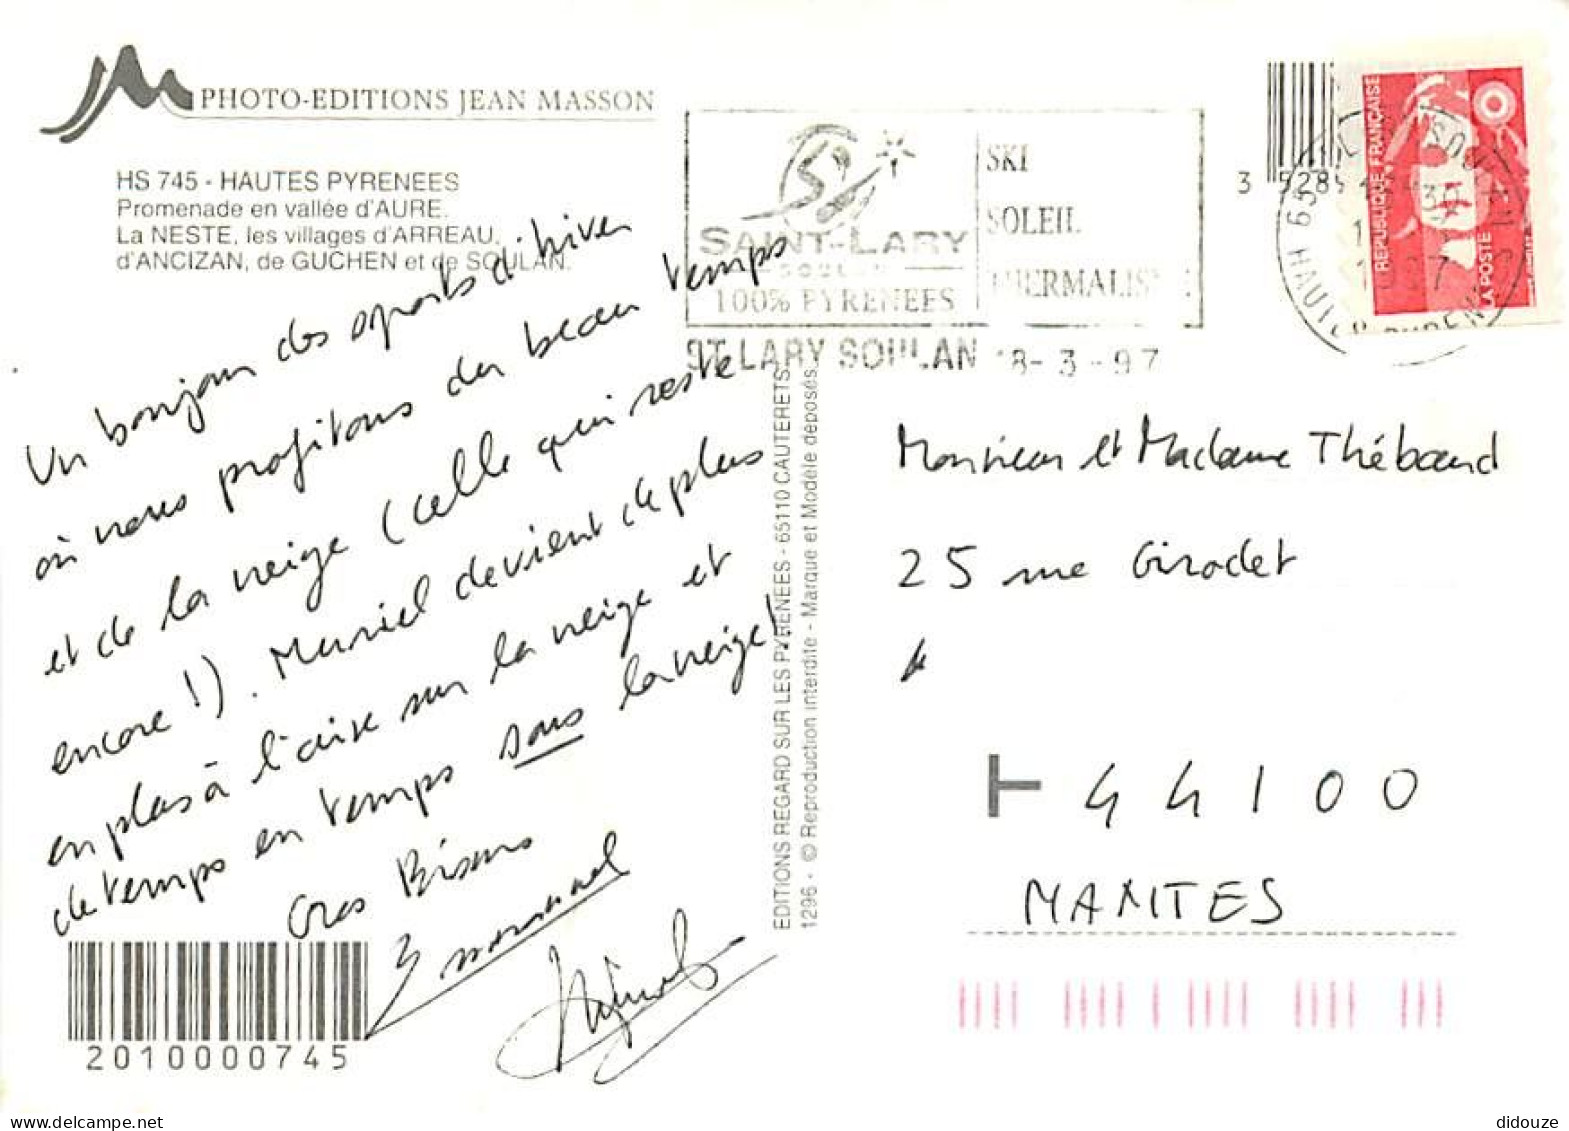 PHOTO-EDITIONS JEAN MASSON
HS 745 - HAUTES PYRENEES
Promenade en vallée d'AURE.
La NESTE, les villages d'ARREAU,
d'ANCIZAN, de GUCHEN et de SOULAN.
Un bonjour des sports d'hiver
où nous profitons du beau temps
et de la neige (celle qui reste
encore !). Muriel devient de plus
en plus à l'aise sur la neige et
de temps en temps sous la neige !
Gros Bisous
2010000745
EDITIONS REGARD SUR LES PYRENEES - 65110 CAUTERETS
1296 - © Reproduction interdite - Marque et Modèle déposés.
SAINT-LARY
SOULAN
100% PYRENEES
SKI
SOLEIL
THERMALISME
ST LARY SOULAN 18-3-97
3 5289
REPUBLIQUE FRANÇAISE
LA POSTE
65
HAUTES PYRENEES
Monsieur et Madame Thébaud
25 rue Girodet
44100
NANTES
didouze